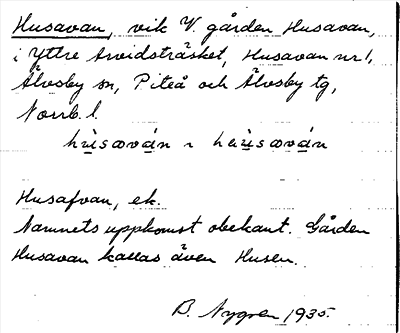 Husavan, vik V. gården Husavan,
i Yttre Arvidsträsket, Husavan nr 1,
Älvsby sn, Piteå och Älvsby tg,
Norrb. l.
Husafvan, ek.
Namnets uppkomst obekant. Gården
Husavan kallas även Husen.
B. Nygren 1935.